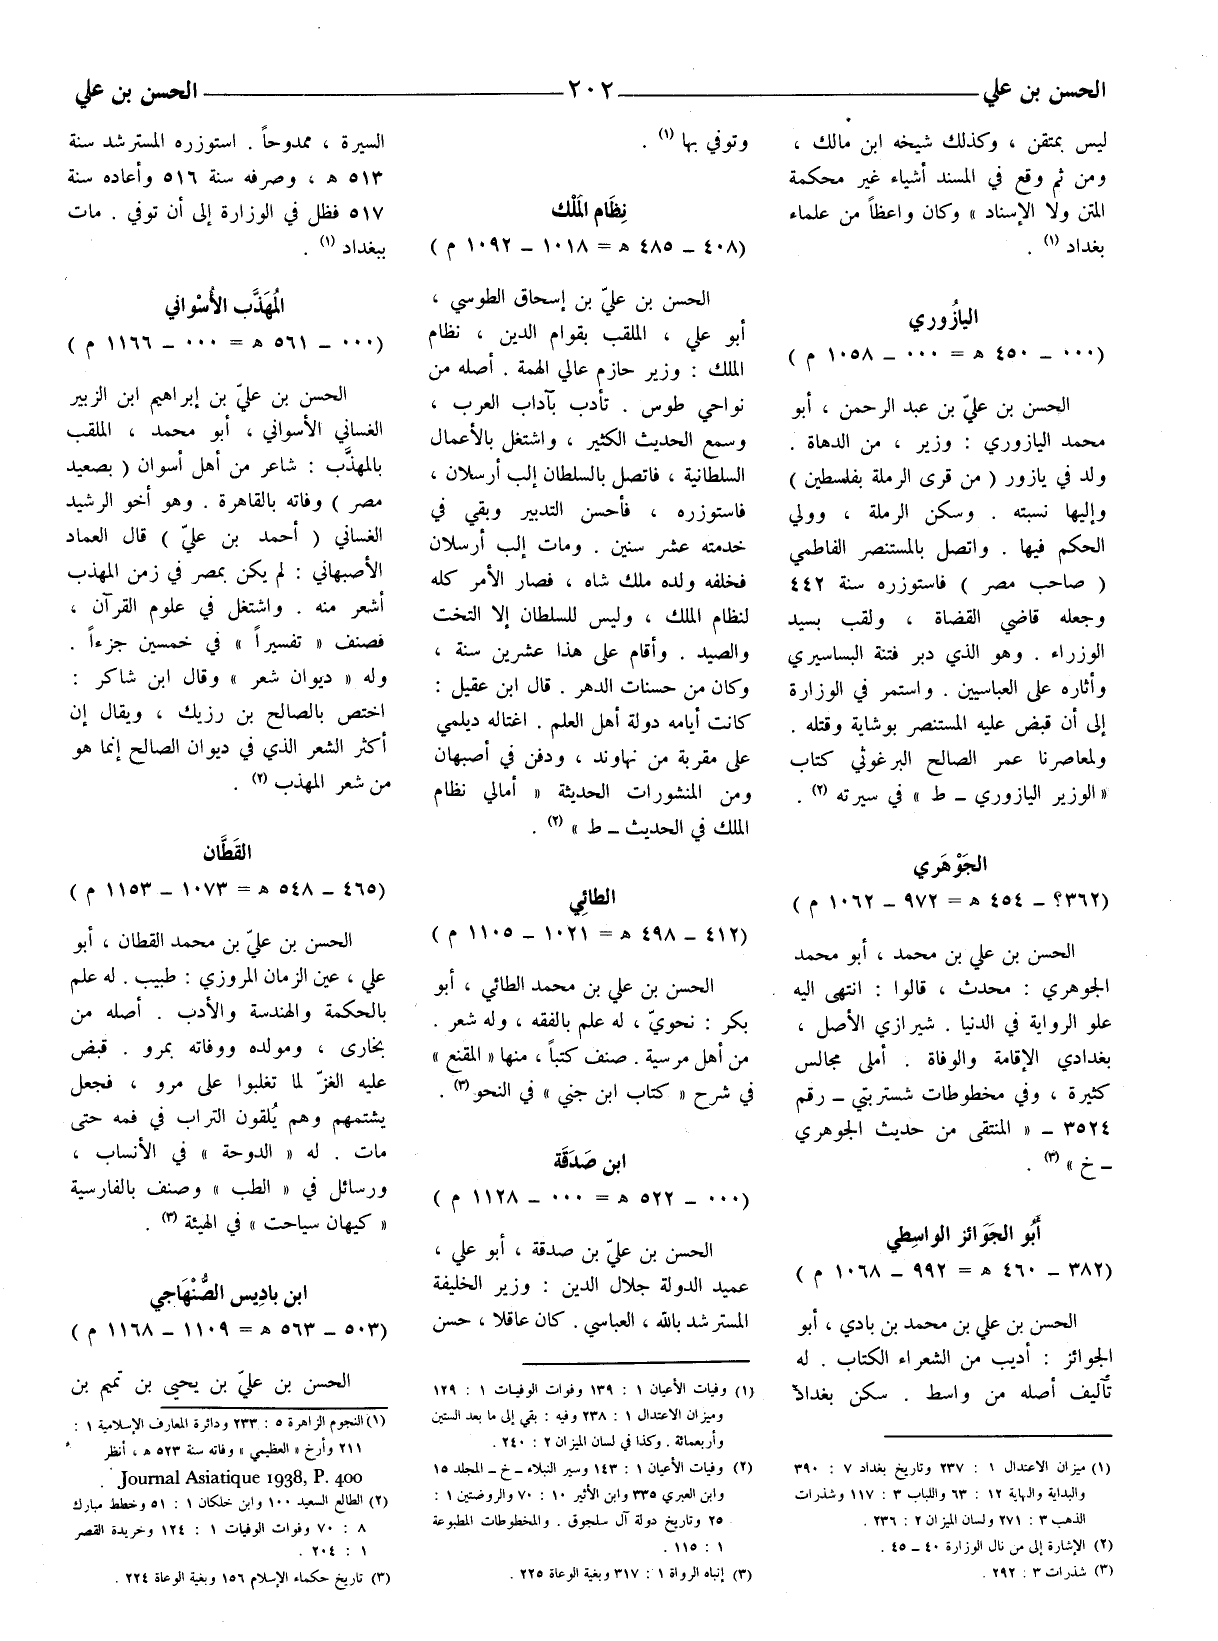 الحسن بن علي ــــــ ٢٠٢ ــــــ الحسن بن علي
ليس بمتقن ، وكذلك شيخه ابن مالك ،
ومن ثم وقع في المسند أشياء غير محكمة
المتن ولا الإسناد » وكان واعظاً من علماء
بغداد (١) .
اليازُوري
(٠٠٠ ــ ٤٥٠ ه = ٠٠٠ ــ ١٠٥٨ م )
الحسن بن عليّ بن عبد الرحمن ، أبو
محمد اليازوري : وزير ، من الدهاة .
ولد في يازور ( من قرى الرملة بفلسطين )
وإليها نسبته . وسكن الرملة ، وولي
الحكم فيها . واتصل بالمستنصر الفاطمي
( صاحب مصر ) فاستوزره سنة ٤٤٢
وجعله قاضي القضاة ، ولقب بسيد
الوزراء . وهو الذي دبر فتنة البساسيري
وأثاره على العباسيين . واستمر في الوزارة
إلى أن قبض عليه المستنصر بوشاية وقتله .
ولمعاصرنا عمر الصالح البرغوثي كتاب
« الوزير اليازوري ــ ط » في سيرته (٢) .
الجَوْهَري
(٣٦٢؟ ــ ٤٥٤ ه = ٩٧٢ ــ ١٠٦٢ م )
الحسن بن علي بن محمد ، أبو محمد
الجوهري : محدث ، قالوا : انتهى اليه
علو الرواية في الدنيا . شيرازي الأصل ،
بغدادي الإقامة والوفاة . أملى مجالس
كثيرة ، وفي مخطوطات شستربتي ــ رقم
٣٥٢٤ ــ « المنتقى من حديث الجوهري
ــ خ » (٣) .
أَبُو الجَوَائز الواسِطي
(٣٨٢ ــ ٤٦٠ ه = ٩٩٢ ــ ١٠٦٨ م )
الحسن بن علي بن محمد بن بادي ، أبو
الجوائز : أديب من الشعراء الكتاب . له
تآليف أصله من واسط . سكن بغداد
(١) ميزان الاعتدال ١ : ٢٣٧ وتاريخ بغداد ٧ : ٣٩٠
والبداية والنهاية ١٢ : ٦٣ واللباب ٣ : ١١٧ وشذرات
الذهب ٣ : ٢٧١ ولسان الميزان ٢ : ٢٣٦ .
(٢) الإشارة إلى من نال الوزارة ٤٠ ــ ٤٥ .
(٣) شذرات ٣ : ٢٩٢ .
وتوفي بها (١) .
نِظَام المَلْك
(٤٠٨ ــ ٤٨٥ ه = ١٠١٨ ــ ١٠٩٢ م )
الحسن بن عليّ بن إسحاق الطوسي ،
أبو علي ، الملقب بقوام الدين ، نظام
الملك : وزير حازم عالي الهمة . أصله من
نواحي طوس . تأدب بآداب العرب ،
وسمع الحديث الكثير ، واشتغل بالأعمال
السلطانية ، فاتصل بالسلطان إلب أرسلان ،
فاستوزره ، فأحسن التدبير وبقي في
خدمته عشر سنين . ومات إلب أرسلان
فخلفه ولده ملك شاه ، فصار الأمر كله
لنظام الملك ، وليس للسلطان إلا التخت
والصيد . وأقام على هذا عشرين سنة ،
وكان من حسنات الدهر . قال ابن عقيل :
كانت أيامه دولة أهل العلم . اغتاله ديلمي
على مقربة من نهاوند ، ودفن في أصبهان
ومن المنشورات الحديثة « أمالي نظام
الملك في الحديث ــ ط » (٢) .
الطائِي
(٤١٢ ــ ٤٩٨ ه = ١٠٢١ ــ ١١٠٥ م )
الحسن بن علي بن محمد الطائي ، أبو
بكر : نحويّ ، له علم بالفقه ، وله شعر .
من أهل مرسية . صنف كتباً ، منها « المقنع »
في شرح « كتاب ابن جني » في النحو (٣) .
ابن صَدَقَة
(٠٠٠ ــ ٥٢٢ ه = ٠٠٠ ــ ١١٢٨ م )
الحسن بن عليّ بن صدقة ، أبو علي ،
عميد الدولة جلال الدين : وزير الخليفة
المسترشد بالله ، العباسي . كان عاقلا ، حسن
(١) وفيات الأعيان ١ : ١٣٩ وفوات الوفيات ١ : ١٢٩
وميزان الاعتدال ١ : ٢٣٨ وفيه : بقي إلى ما بعد الستين
وأربعمائة . وكذا في لسان الميزان ٢ : ٢٤٠ .
(٢) وفيات الأعيان ١ : ١٤٣ وسير النبلاء ــ خ ــ المجلد ١٥
وابن العبري ٣٣٥ وابن الأثير ١٠ : ٧٠ والروضتين ١ :
٢٥ وتاريخ دولة آل سلجوق . والمخطوطات المطبوعة
١ : ١١٥ .
(٣) إنباه الرواة ١ : ٣١٧ وبغية الوعاة ٢٢٥ .
السيرة ، ممدوحاً . استوزره المسترشد سنة
٥١٣ ه ، وصرفه سنة ٥١٦ وأعاده سنة
٥١٧ فظل في الوزارة إلى أن توفي . مات
ببغداد (١) .
المُهَذَّب الأُسْواني
(٠٠٠ ــ ٥٦١ ه = ٠٠٠ ــ ١١٦٦ م )
الحسن بن عليّ بن إبراهيم ابن الزبير
الغساني الأسواني ، أبو محمد ، الملقب
بالمهذَّب : شاعر من أهل أسوان ( بصعيد
مصر ) وفاته بالقاهرة . وهو أخو الرشيد
الغساني ( أحمد بن عليّ ) قال العماد
الأصبهاني : لم يكن بمصر في زمن المهذب
أشعر منه . واشتغل في علوم القرآن ،
فصنف « تفسيراً » في خمسين جزءاً .
وله « ديوان شعر » وقال ابن شاكر :
اختص بالصالح بن رزيك ، ويقال إن
أكثر الشعر الذي في ديوان الصالح إنما هو
من شعر المهذب (٢) .
القَطَّان
(٤٦٥ ــ ٥٤٨ ه = ١٠٧٣ ــ ١١٥٣ م )
الحسن بن عليّ بن محمد القطان ، أبو
علي ، عين الزمان المروزي : طبيب . له علم
بالحكمة والهندسة والأدب . أصله من
بخارى ، ومولده ووفاته بمرو . قبض
عليه الغزّ لما تغلبوا على مرو ، فجعل
يشتمهم وهم يُلقون التراب في فمه حتى
مات . له « الدوحة » في الأنساب ،
ورسائل في « الطب » وصنف بالفارسية
« كيهان سياحت » في الهيئة (٣) .
ابن بادِيس الصُّنْهَاجي
(٥٠٣ ــ ٥٦٣ ه = ١١٠٩ ــ ١١٦٨ م )
الحسن بن عليّ بن يحيى بن تميم بن
(١) النجوم الزاهرة ٥ : ٢٣٣ ودائرة المعارف الإسلامية ١ :
٢١١ وأرخ « العظيمي » وفاته سنة ٥٢٣ ه ، أنظر
Journal Asiatique 1938, P. 400 .
(٢) الطالع السعيد ١٠٠ وابن خلكان ١ : ٥١ وخطط مبارك
٨ : ٧٠ وفوات الوفيات ١ : ١٢٤ وخريدة القصر
١ : ٢٠٤ .
(٣) تاريخ حكماء الإسلام ١٥٦ وبغية الوعاة ٢٢٤ .